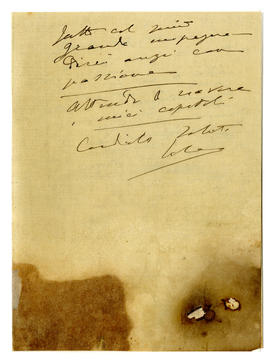 fatto col più
grande impegno
Direi anzi con
passione
Attendo a ricevere
i miei capitoli
Cordiali saluti